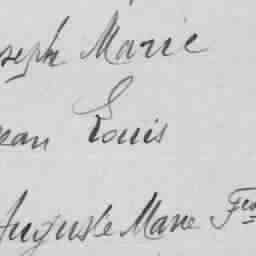 seph Marie
ean Louis
Auguste Marie Fra